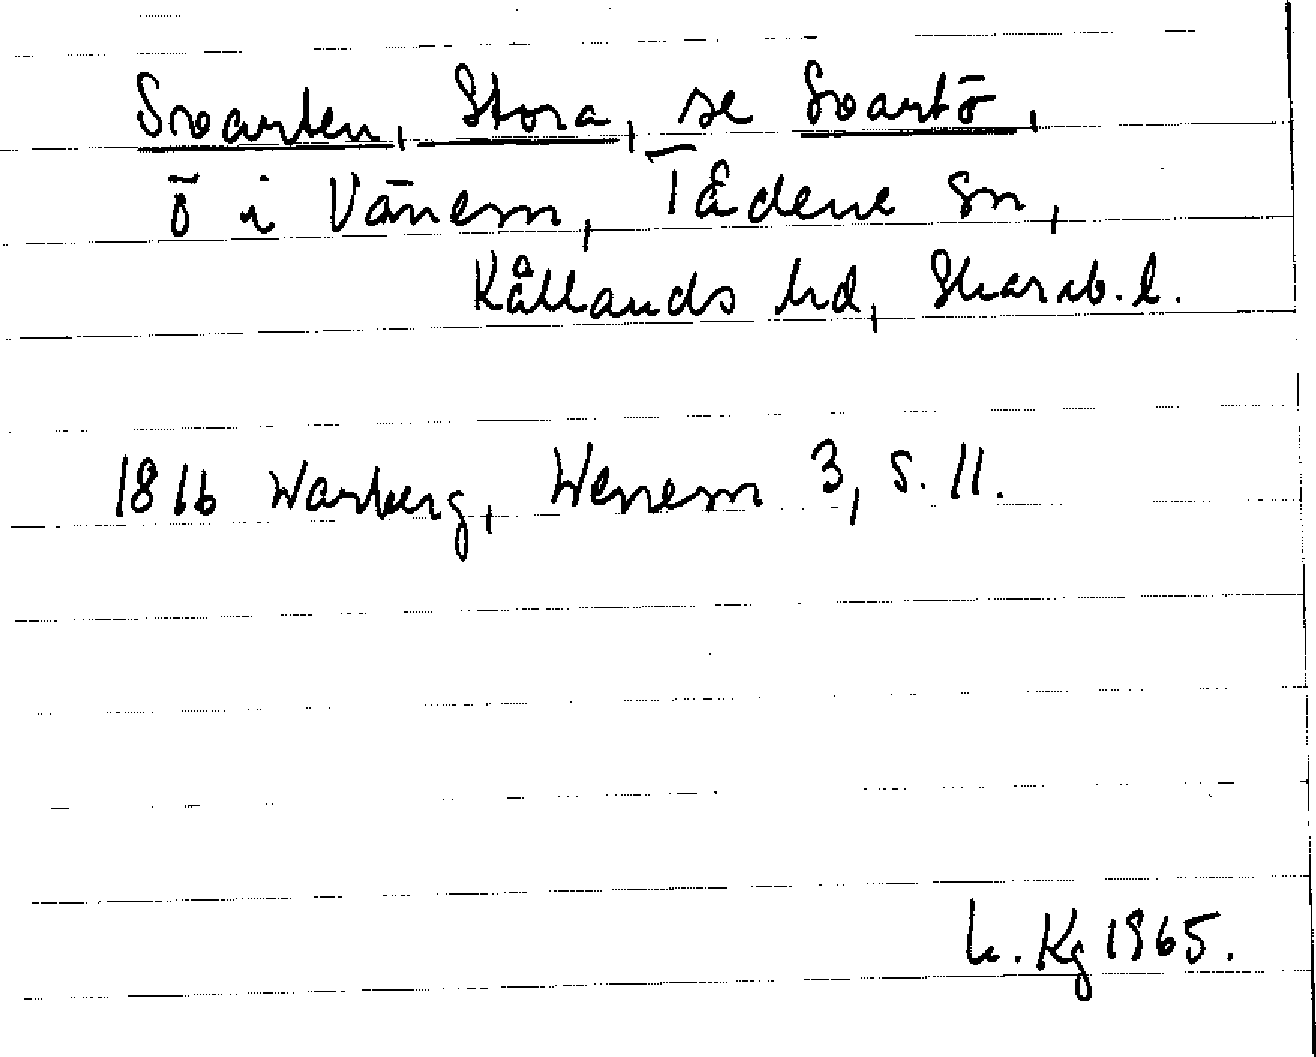 Svarten, Stora, se Svartö,
ö i Vänern, Tådene sn,
Kållands hd, Skarab. l.
1816 Warberg, Wenern 3, s. 11.
L. Kg 1965.